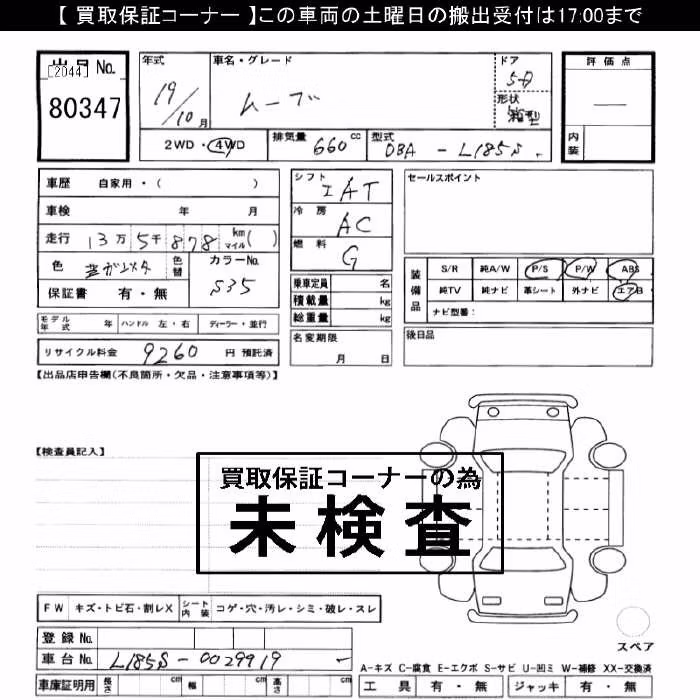 【 買取保証コーナー 】この車両の土曜日の搬出受付は17:00まで
出品 No.
[2044]
80347
年式 19/10月
車名・グレード ムーブ
ドア 5D
形状 箱型
評価点 —
内装
2WD・4WD
排気量 660 cc
型式 DBA - L185S
車歴 自家用・( )
車検 年 月
走行 13万5千878 km マイル( )
色
色替
カラーNo. S35
保証書 有・無
シフト IAT
冷房 AC
燃料 G
乗車定員 名
積載量 kg
総重量 kg
セールスポイント
装備品
S/R 純A/W P/S P/W ABS
純TV 純ナビ 革シート 外ナビ エアB
ナビ型番:
モデル年式 年 ハンドル 左・右 ディーラー・並行
名変期限 月 日
後日品
リサイクル料金 9260 円 預託済
【出品店申告欄(不良箇所・欠品・注意事項等)】
【検査員記入】
買取保証コーナーの為
未検査
FW キズ・トビ石・割レX シート内装 コゲ・穴・汚レ・シミ・破レ・スレ
スペア
登録 No.
車台 No. L185S-0029919
A-キズ C-腐食 E-エクボ S-サビ U-凹ミ W-補修 XX-交換済
車庫証明用 長さ cm 幅 cm 高さ cm
工具 有・無 ジャッキ 有・無